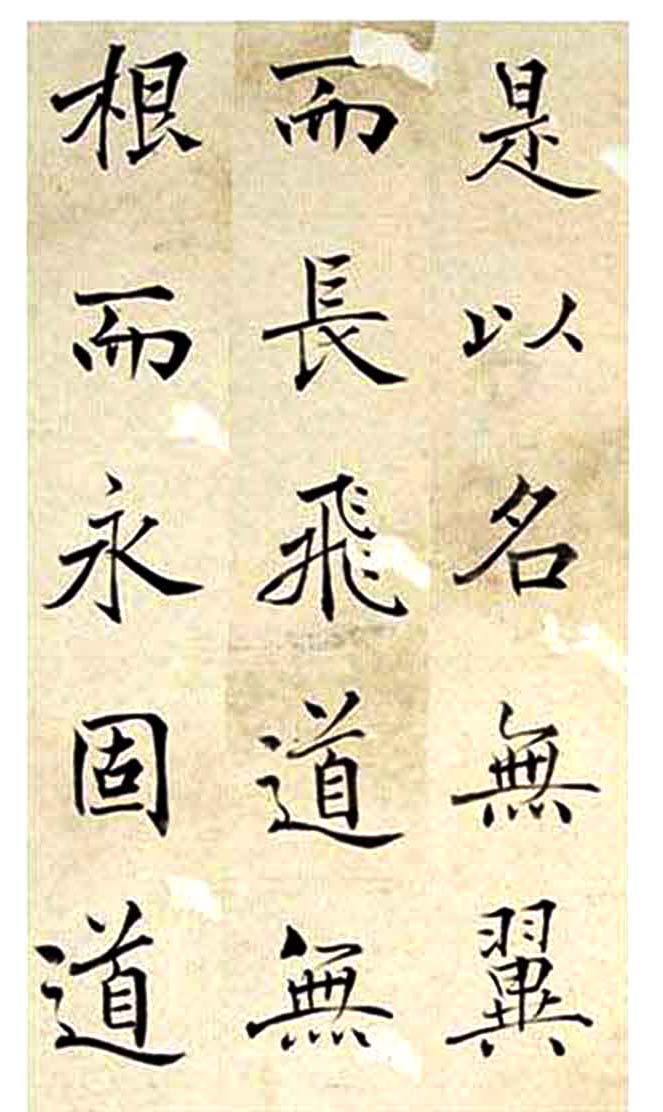 是以名無翼
而長飛道無
根而永固道